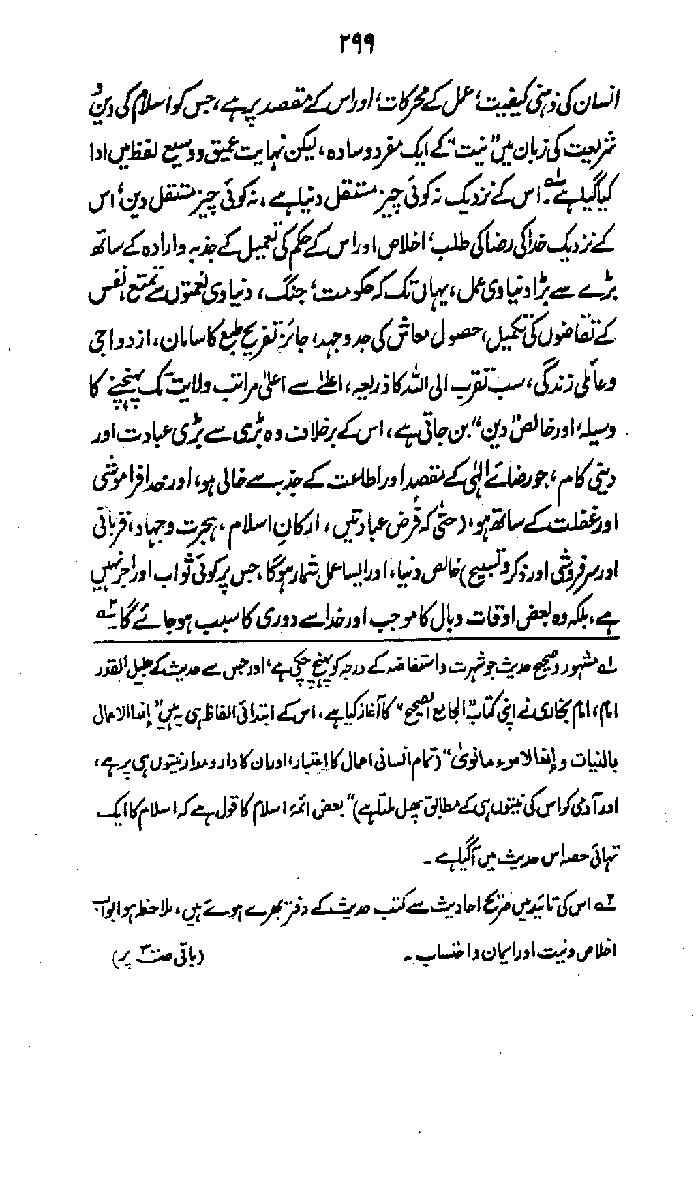 ۲۹۹
انسان کی ذہنی کیفیت، عمل کے محرکات، اور اس کے مقصد پر ہے، جس کو اسلام کی دین و
شریعت کی زبان میں "نیت" کے ایک مفرد و سادہ، لیکن نہایت عمیق و وسیع لفظ میں ادا
کیا گیا ہے۱ے۔ اس کے نزدیک نہ کوئی چیز مستقل دنیا ہے، نہ کوئی چیز مستقل دین، اس
کے نزدیک خدا کی رضا کی طلب، اخلاص اور اس کے حکم کی تعمیل کے جذبہ و ارادہ کے ساتھ
بڑے سے بڑا دنیاوی عمل، یہاں تک کہ حکومت، جنگ، دنیاوی نعمتوں سے تمتع، نفس
کے تقاضوں کی تکمیل، حصول معاش کی جدوجہد، جائز تفریح طبع کا سامان، ازدواجی
و عائلی زندگی، سب تقرب الی اللہ کا ذریعہ، اعلیٰ سے اعلیٰ مراتب ولایت تک پہنچنے کا
وسیلہ، اور خالص "دین" بن جاتی ہے، اس کے برخلاف وہ بڑی سے بڑی عبادت اور
دینی کام، جو رضائے الٰہی کے مقصد اور اطاعت کے جذبہ سے خالی ہو، اور خدا فراموشی
اور غفلت کے ساتھ ہو، (حتٰی کہ فرض عبادتیں، ارکانِ اسلام، ہجرت و جہاد، قربانی
اور سرفروشی اور ذکر و تسبیح) خالص دنیا، اور ایسا عمل شمار ہوگا، جس پر کوئی ثواب اور اجر نہیں
ہے، بلکہ وہ بعض اوقات وبال کا موجب اور خدا سے دوری کا سبب ہو جائے گا۲ے
۱ے مشہور و صحیح حدیث جو شہرت و استفاضہ کے درجہ کو پہنچ چکی ہے، اور جس سے حدیث کے جلیل القدر
امام، امام بخاری نے اپنی کتاب "الجامع الصحیح" کا آغاز کیا ہے، اس کے ابتدائی الفاظ ہی یہ ہیں "إنما الاعمال
بالنیات و إنما لامرء مانوی" (تمام انسانی اعمال کا اعتبار، اور ان کا دارومدار نیتوں ہی پر ہے،
اور آدمی کو اس کی نیتوں ہی کے مطابق پھل ملتا ہے)" بعض ائمۂ اسلام کا قول ہے کہ اسلام کا ایک
تہائی حصہ اس حدیث میں آگیا ہے۔
۲ے اس کی تائید میں صریح احادیث سے کتب حدیث کے دفتر بھرے ہوئے ہیں، ملاحظہ ہو ابواب
اخلاص و نیت اور ایمان و احتساب۔ (باقی ص۳۰۰ پر)